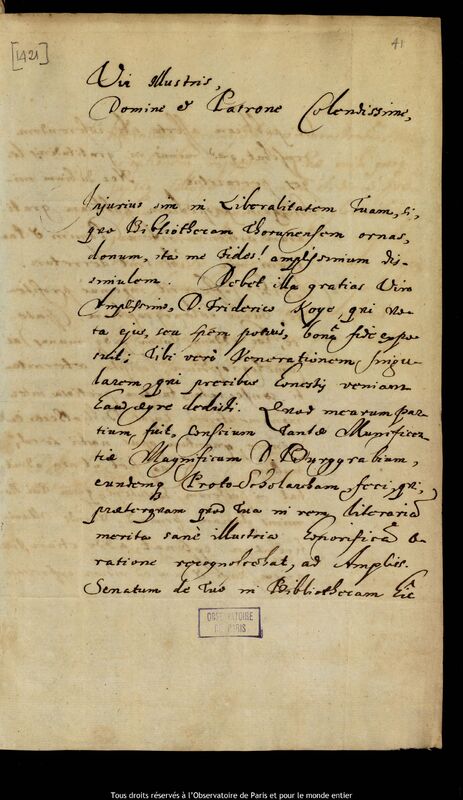 [1421]
41
Vir Illustris,
Domine et Patrone Colendissime,
Injurius sim in Liberalitatem Tuam, si,
quo Bibliothecam Thorunensem ornas,
donum, ita me Fides! amplissimum dis-
simulem. Debet illa gratias Viro
Amplissimo, D. Friderico Koye, qui vo-
ta ejus, seu spem potius, bona fide expo-
suit; Tibi vero Venerationem singu-
larem, qui precibus honestis veniam
haud ægre dedisti. Quod mearum par-
tium fuit, conscium Tantæ Munificen-
tiæ Magnificum D. Burggrabium,
eundemq Proto-Scholarcham, feci, qui,
præterquam quod Tua in rem literariam
merita sane illustria honorifica o-
ratione recognoscebat, ad Ampliss.
Senatum de Tuo in Bibliothecam
OBSERVATOIRE
DE PARIS
Tous droits réservés à l'Observatoire de Paris et pour le monde entier